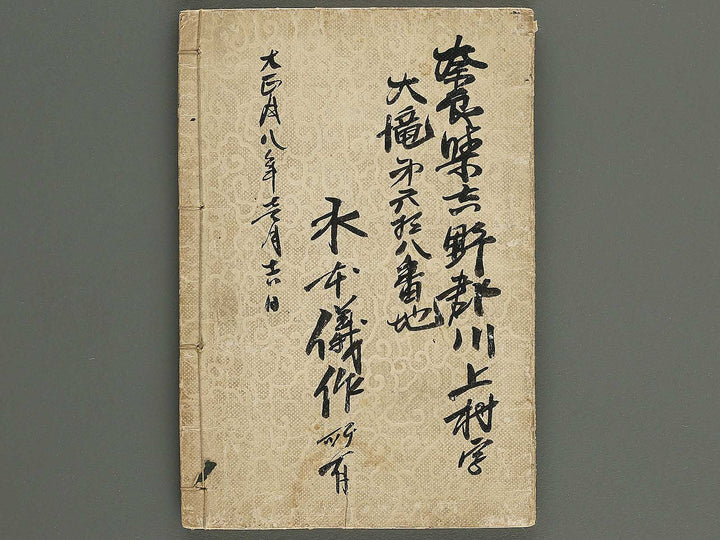 奈良縣吉野郡川上村字
大滝第六拾八番地
木本儀作所有
大正月八年壱月十八日